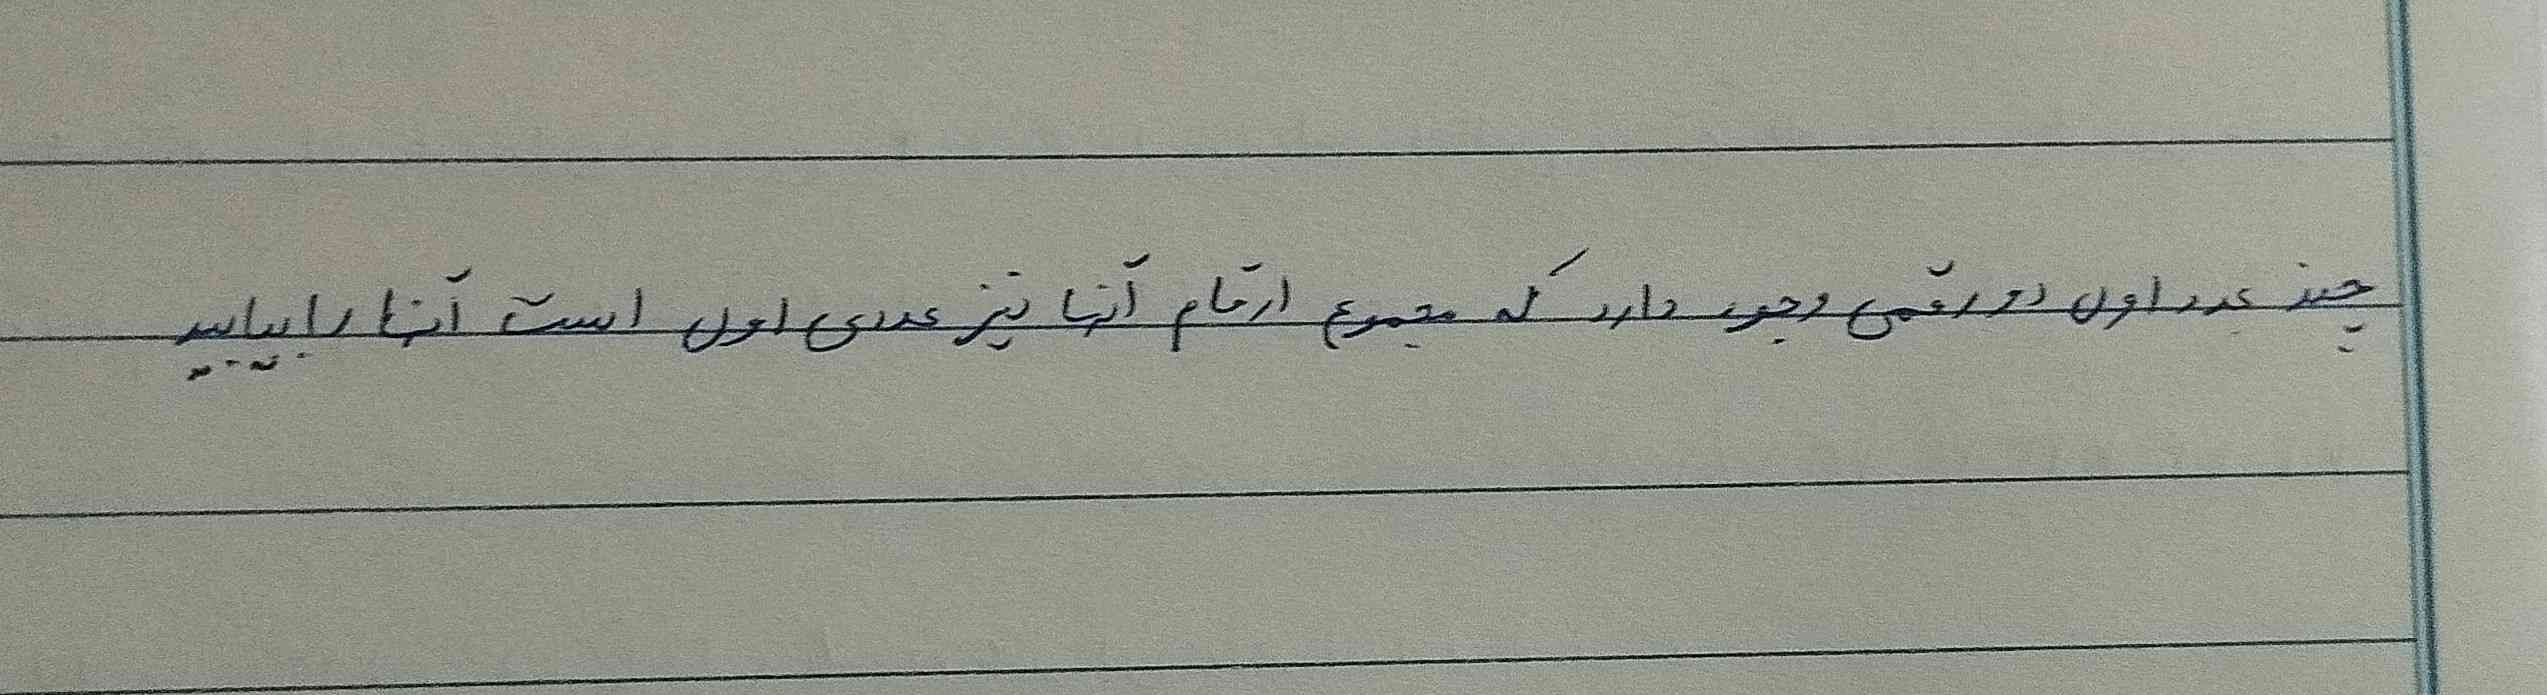 چند عدد اول دو رقمی وجود دارد که مجموع ارقام آنها نیز عددی اول است آنها را بیابید